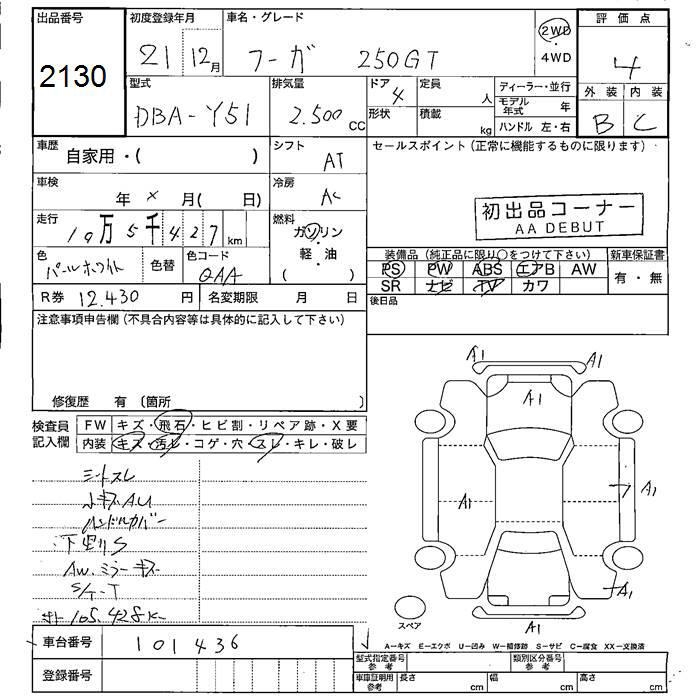 出品番号
2130
初度登録年月
21 12月
車名・グレード
フーガ 250GT
2WD
・
4WD
評価点
4
型式
DBA-Y51
排気量
2.500 CC
ドア 4
形状
定員 人
積載 kg
ディーラー・並行
モデル年式 年
ハンドル 左・右
外装 内装
B C
車歴
自家用・( )
シフト
AT
セールスポイント (正常に機能するものに限ります)
車検
年 × 月( 日)
冷房
AC
初出品コーナー
AA DEBUT
走行
10万5千427 km
燃料
ガソリン
・
軽・油
( )
色
パールホワイト
色替
色コード
QAA
装備品 (純正品に限り○をつけて下さい)
新車保証書
PS PW ABS エアB AW
SR ナビ TV カワ
有・無
R券 12.430 円
名変期限 月 日
後日品
注意事項申告欄 (不具合内容等は具体的に記入して下さい)
修復歴 有 (箇所 )
検査員
記入欄
FW キズ・飛石・ヒビ割・リペア跡・X要
内装 キズ・汚レ・コゲ・穴・スレ・キレ・破レ
シートスレ
小キズA.U
ハンドルカバー
・下廻りS
AW.ミラーキズ
S/K-T
105.428K
A1 A1
A1
A1 A1
A1
A1
スペア
A=キズ E=エクボ U=凹み W=補修跡 S=サビ C=腐食 XX=交換済
車台番号 101436
登録番号
型式指定番号
参考
類別区分番号
参考
車庫証明用
参考
長さ cm 幅 cm 高さ cm